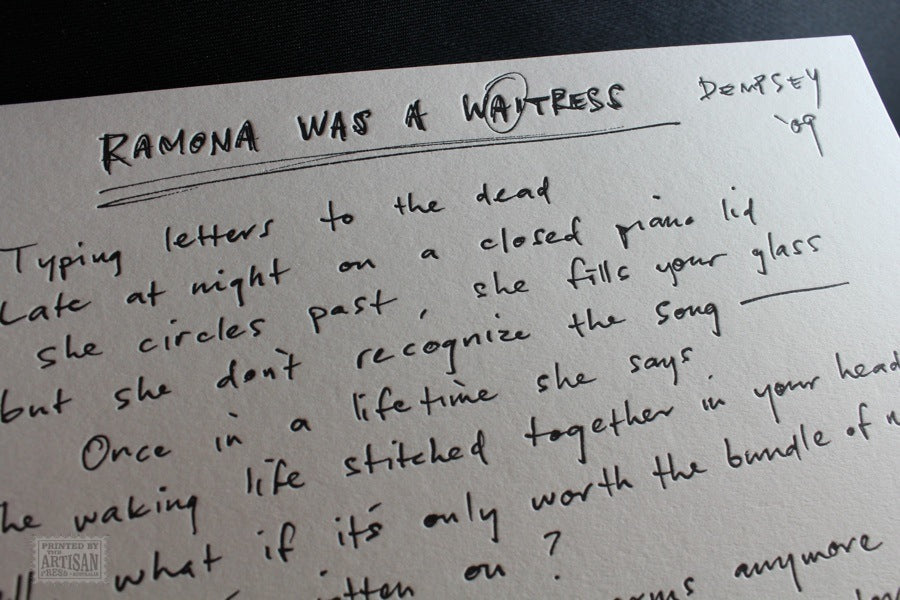 RAMONA WAS A WAITRESS
DEMPSEY
'09
Typing letters to the dead
Late at night on a closed piano lid
she circles past, she fills your glass
but she don't recognize the song —
Once in a lifetime she says
he waking life stitched together in your head
what if it's only worth the bundle of n
itten on?
anymore
PRINTED BY
THE
ARTISAN
PRESS • AUSTRALIA